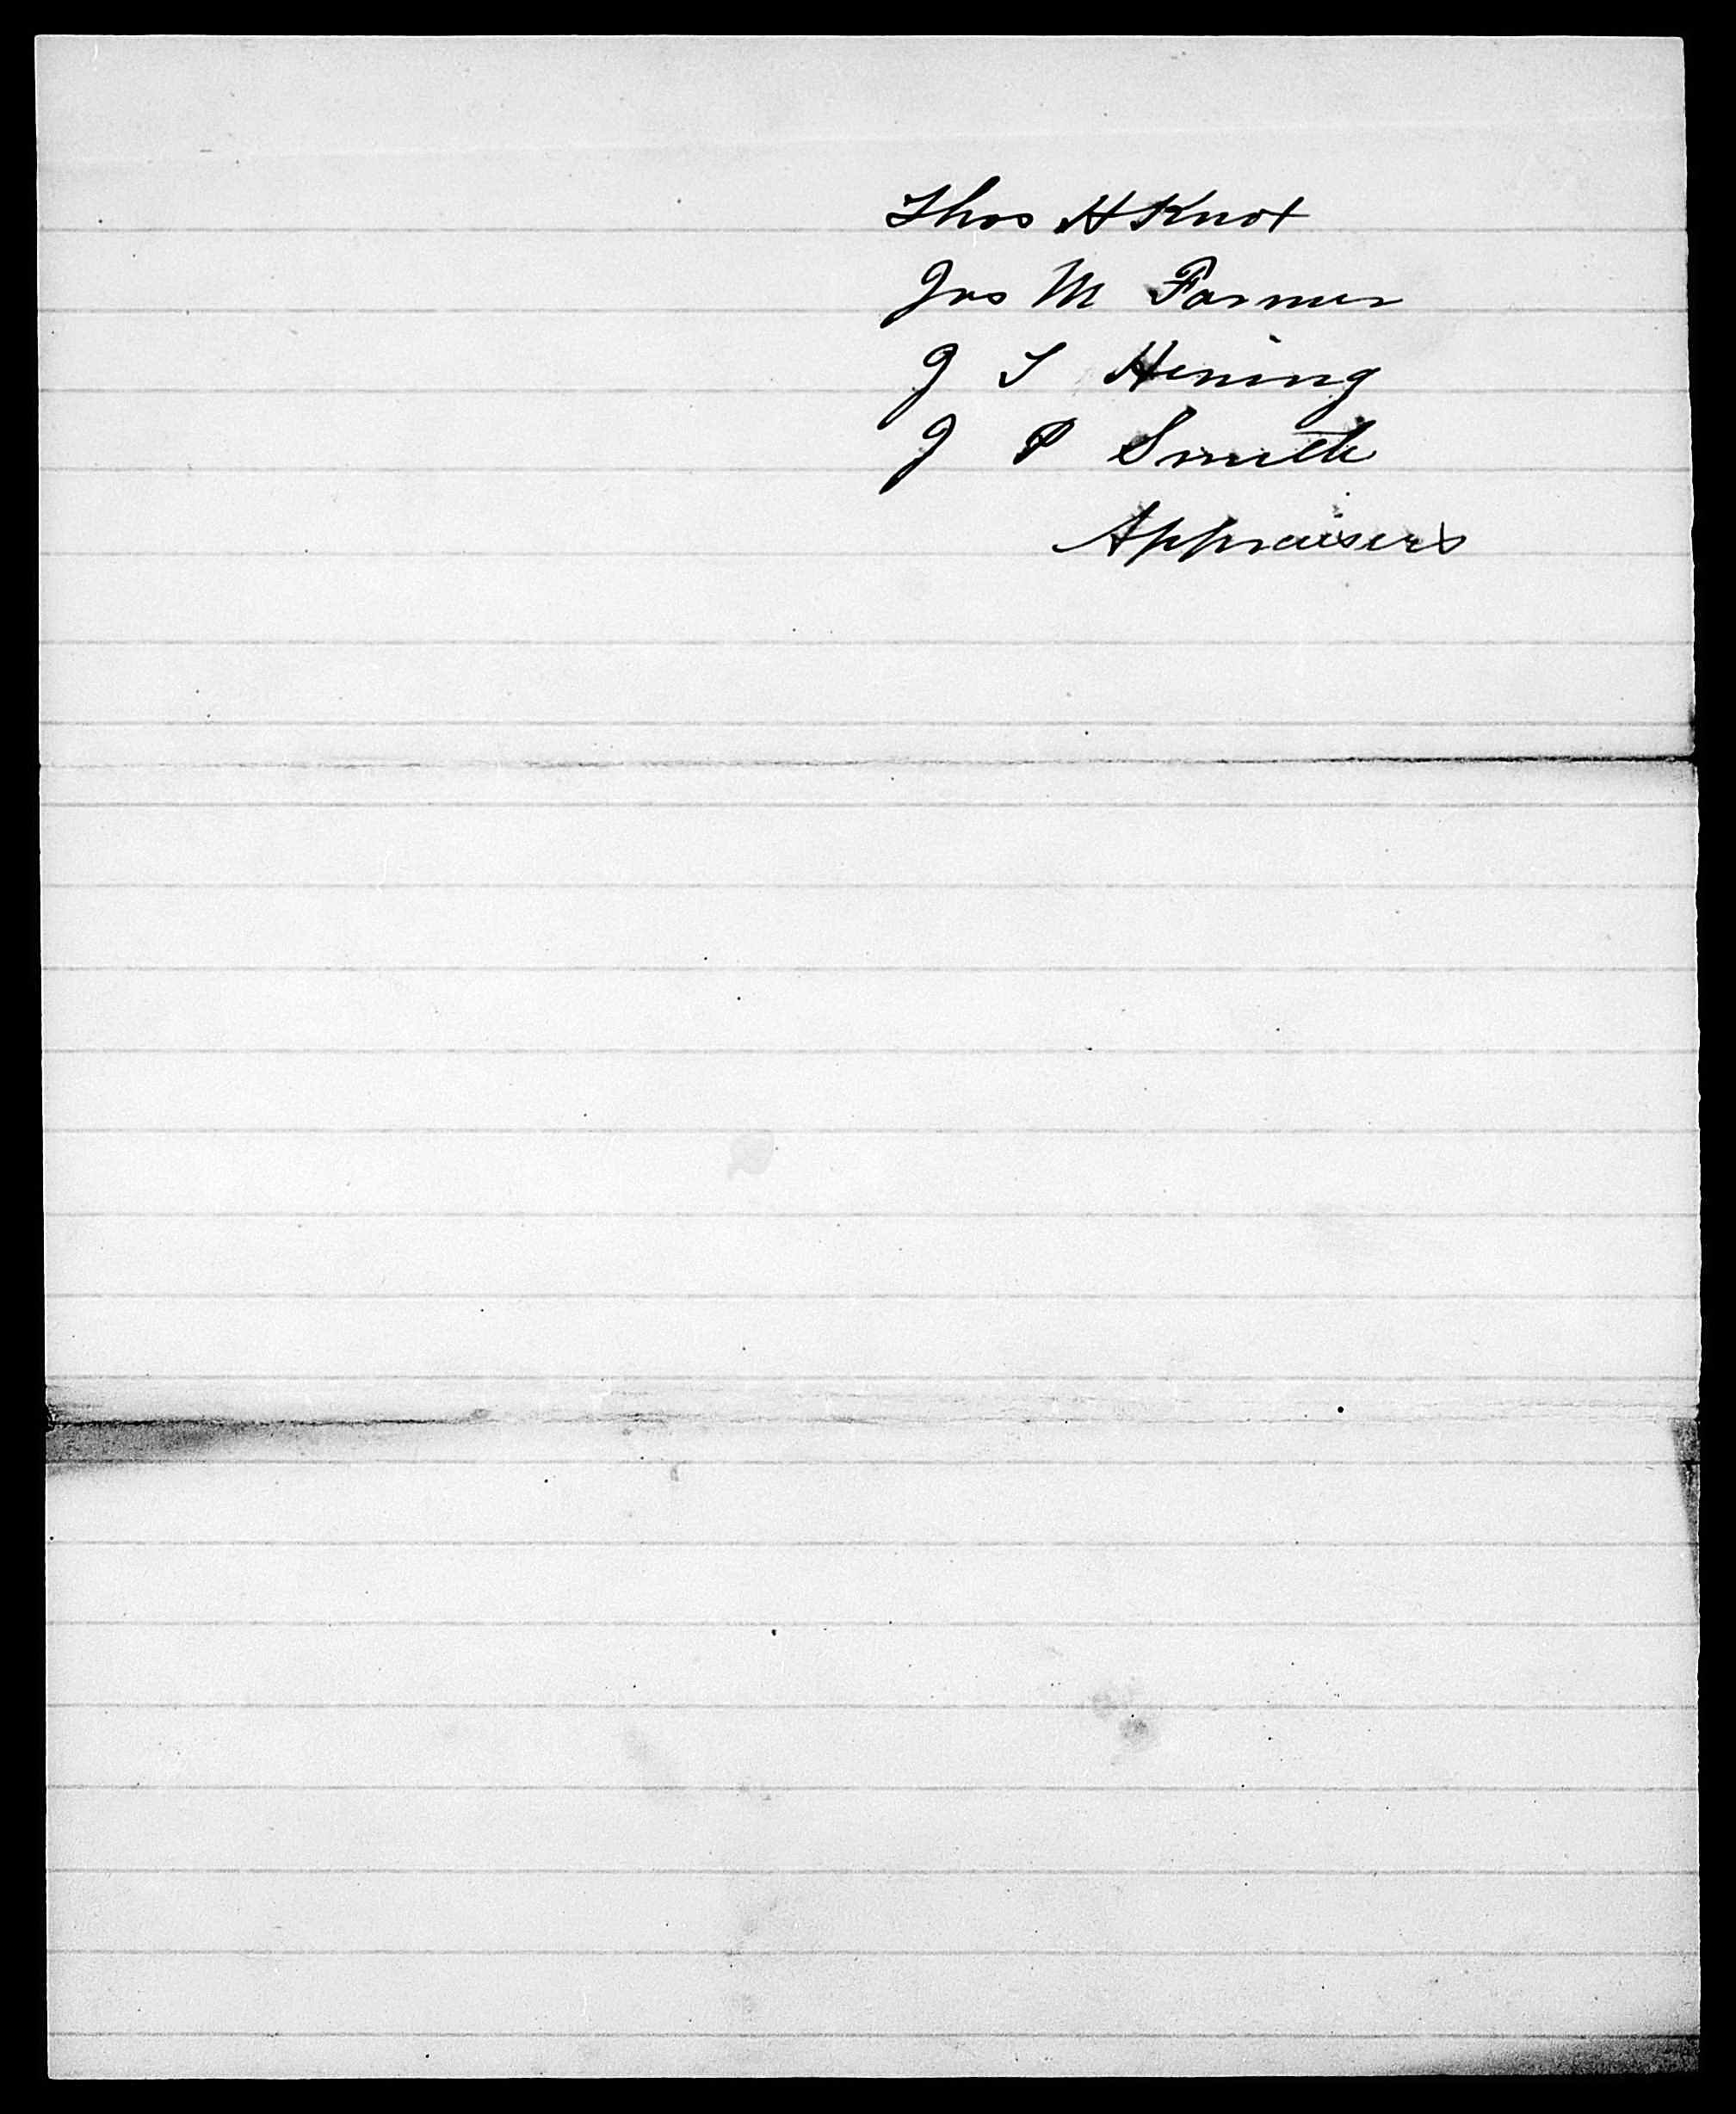 Thos H Knot
Jas M Farmer
J T Hening
J P Smith
Appraisers